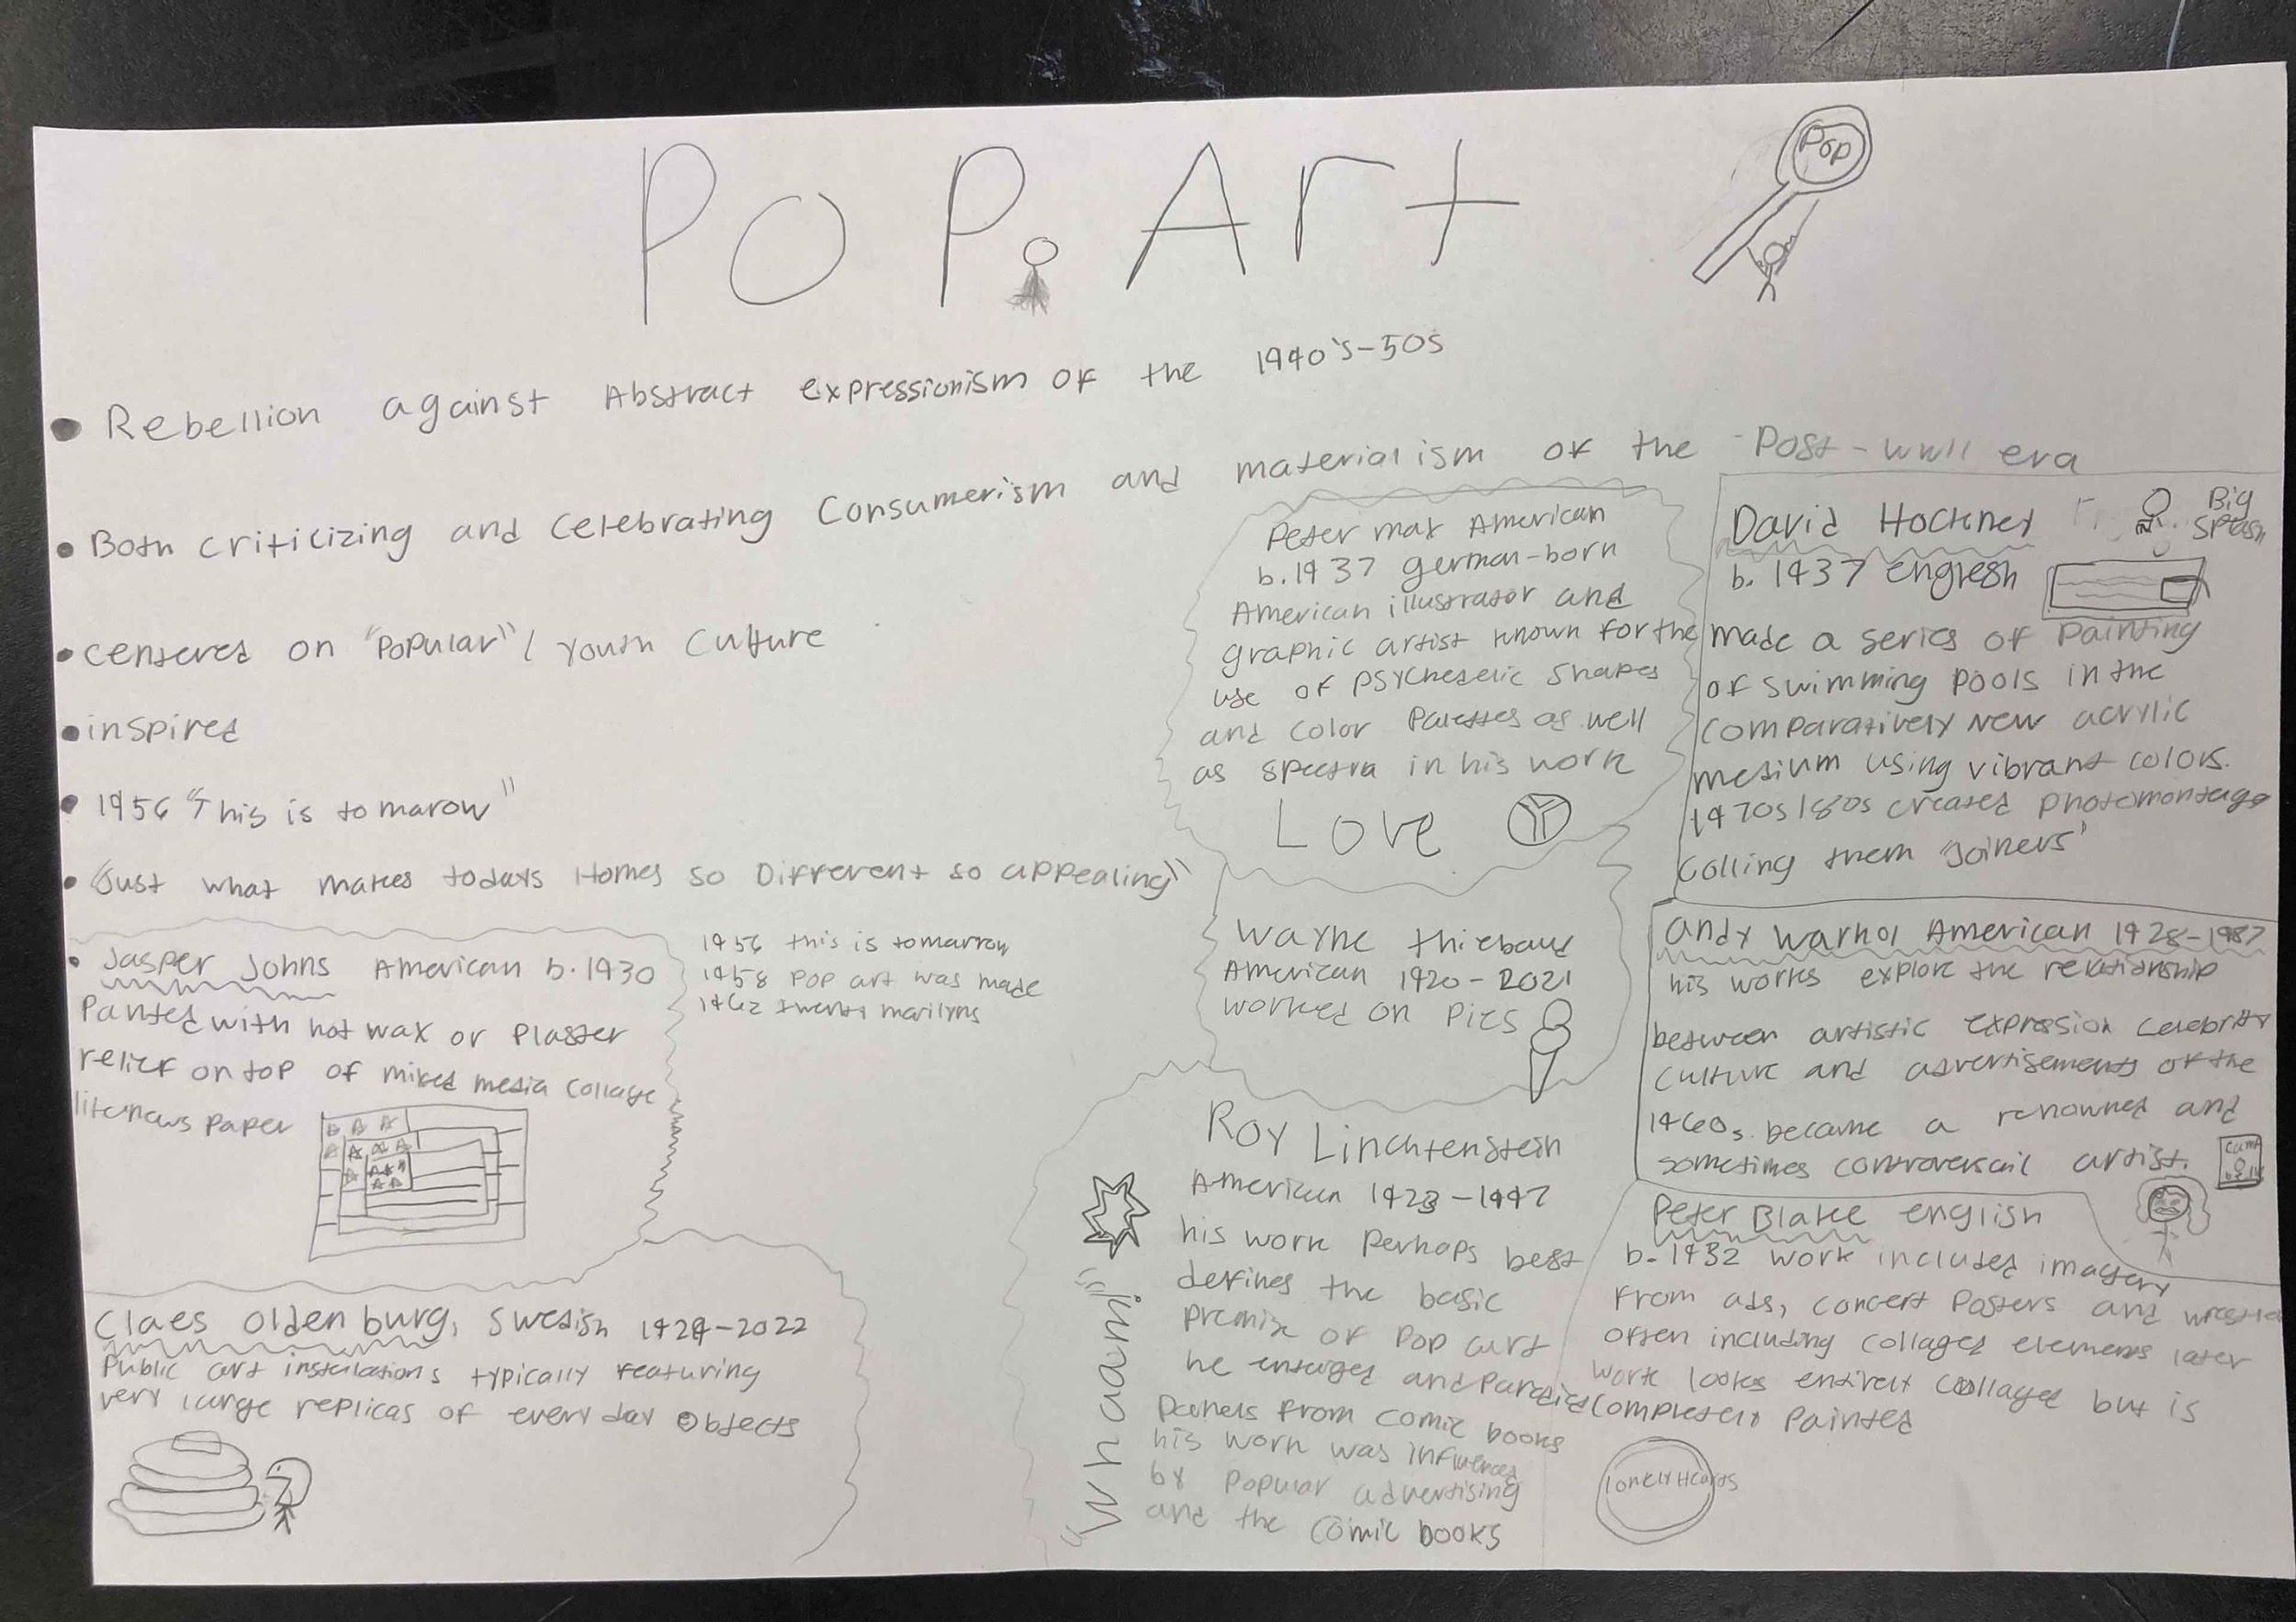 POP Art
Pop
Rebellion against Abstract expressionism of the 1940's-50s
Both criticizing and celebrating Consumerism and materialism of the Post-wwII era
centered on "Popular"/ Youth Culture
inspired
1956 "This is tomarow"
"Just what makes todays Homes so Different so appealing"
Jasper Johns American b.1930
Panted with hot wax or Plaster
relief on top of mixed media collage
like news paper
1956 this is tomarrow
1958 pop art was made
1962 twenty marilyns
Claes Oldenburg, Swedish 1929-2022
Public art instalations typically featuring
very large replicas of every day objects
Peter max American
b.1937 german-born
American illustrator and
graphic artist known for the
use of psychedelic shapes
and color Palettes as well
as spectra in his work
Love
Wayne thiebaud
American 1920-2021
worked on Pies
Roy Linchtenstein
American 1923-1997
his work Perhaps best
defines the basic
premise of Pop art
he enlarged and Parodied
Panels from comic books
his work was influenced
by Popular advertising
and the comic books
"Whaam!"
David Hockney
b. 1937 english
Big
Splash
made a series of Painting
of swimming pools in the
comparatively new acrylic
medium using vibrant colors.
1970s/80s created photomontage
calling them "Joiners"
andy warhol American 1928-1987
his works explore the relationship
between artistic expression celebrity
culture and advertisements of the
1960s. became a renowned and
sometimes controversail artist.
Peter Blake english
b. 1932 work included imagery
from ads, concert Posters and
often including collaged elements later
work looks entirely collaged but is
completely painted
lonely Hearts